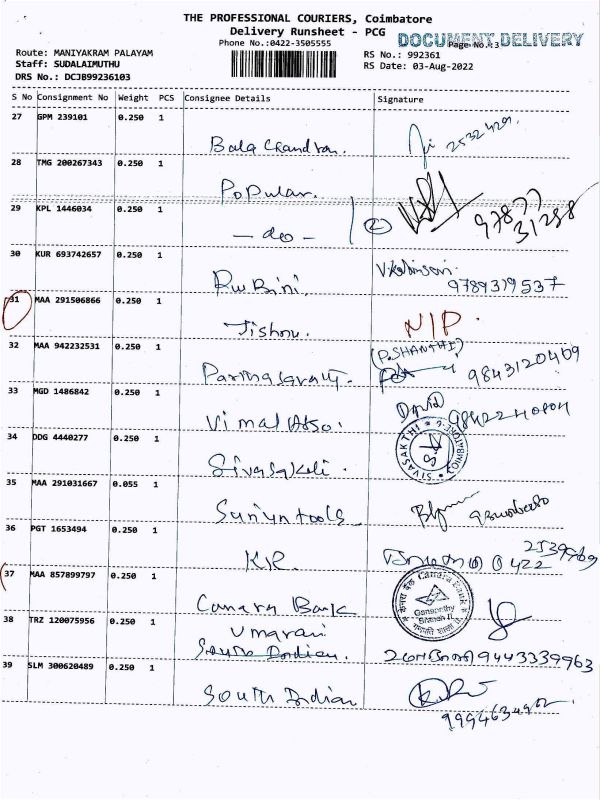 THE PROFESSIONAL COURIERS, Coimbatore
Delivery Runsheet - PCG
DOCUMENT DELIVERY
Phone No.:0422-3505555
Page No.:3
Route: MANIYAKRAM PALAYAM
RS No.: 992361
Staff: SUDALAIMUTHU
RS Date: 03-Aug-2022
DRS No.: DCJB99236103
S No Consignment No Weight PCS Consignee Details Signature
27 GPM 239101 0.250 1
Bala Chandran.
28 TMG 200267343 0.250 1
Popular.
29 KPL 1446034 0.250 1
- do -
97877
31288
30 KUR 693742657 0.250 1
Rubini.
9789319537
31 MAA 291506866 0.250 1
Jishnu. NIP.
32 MAA 942232531 0.250 1
(P.SHANTHI)
9843120469
33 MGD 1486842 0.250 1
David
34 DDG 4440277 0.250 1
SIVASAKTHI
COIMBATORE-6
Sivasakti.
35 MAA 291031667 0.055 1
tools
36 PGT 1653494 0.250 1
K.R.
0422
37 MAA 857899797 0.250 1
Canara Bank
Canara Bank
Ganapathy
Branch II
38 TRZ 120075956 0.250 1
Umarani
South Indian.
9443339963
39 SLM 300620489 0.250 1
South Indian